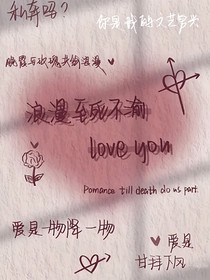 私奔吗?
你是我的文艺男头
晚霞与玫瑰共倒浪漫
浪漫至死不渝
love you
Pomance till death do us part.
爱是一物降一物
爱是
甘拜下风